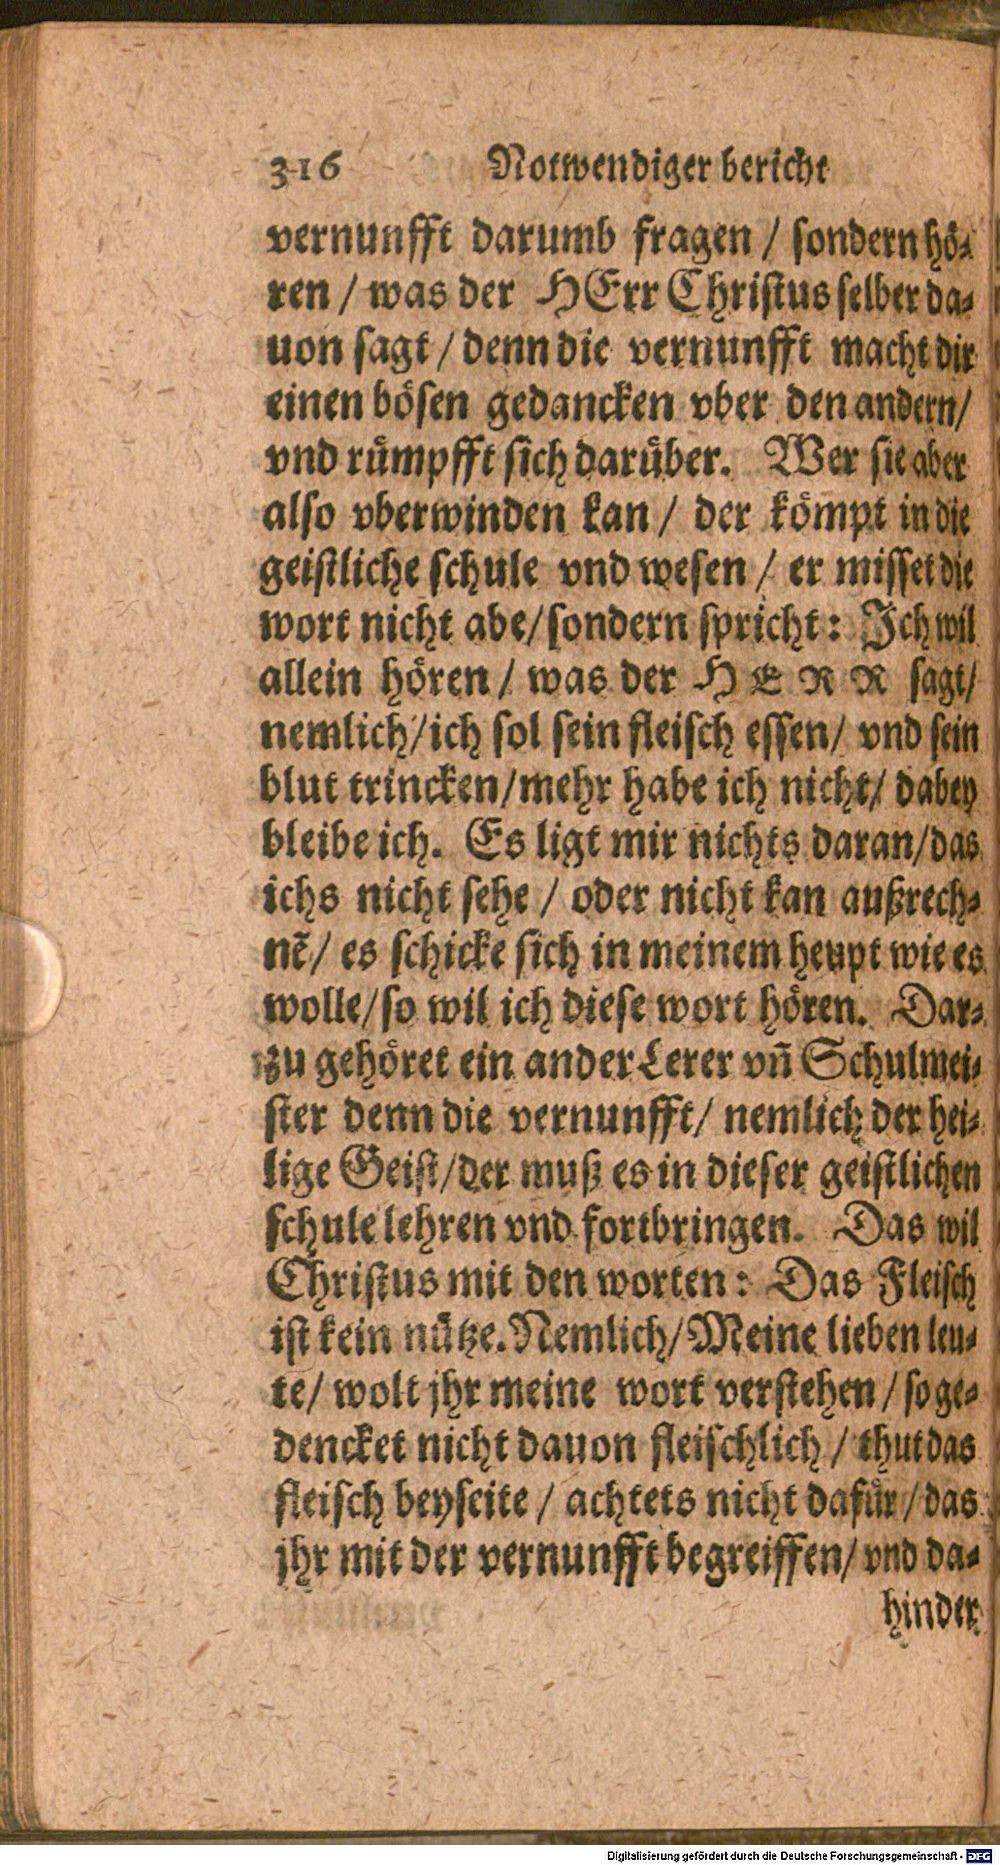 316 Notwendiger bericht
vernunfft darumb fragen / sondern hö-
ren / was der HErr Christus selber da-
uon sagt / denn die vernunfft macht dir
einen bösen gedancken vber den andern/
vnd rümpfft sich darüber. Wer sie aber
also vberwinden kan / der kömpt in die
geistliche schule vnd wesen / er misset die
wort nicht abe/sondern spricht: Ich wil
allein hören / was der HERR sagt/
nemlich/ich sol sein fleisch essen/ vnd sein
blut trincken/mehr habe ich nicht/ dabey
bleibe ich. Es ligt mir nichts daran/das
ichs nicht sehe / oder nicht kan außrech-
nē/ es schicke sich in meinem heupt wie es
wolle/so wil ich diese wort hören. Dar-
zu gehöret ein ander Lerer vn̄ Schulmei-
ster denn die vernunfft/ nemlich der hei-
lige Geist/der muß es in dieser geistlichen
schule lehren vnd fortbringen. Das wil
Christus mit den worten: Das Fleisch
ist kein nütze. Nemlich/Meine lieben leu-
te/ wolt jhr meine wort verstehen / so ge-
dencket nicht dauon fleischlich / thut das
fleisch beyseite / achtets nicht dafür / das
jhr mit der vernunfft begreiffen/ vnd da-
hinder
Digitalisierung gefördert durch die Deutsche Forschungsgemeinschaft - DFG